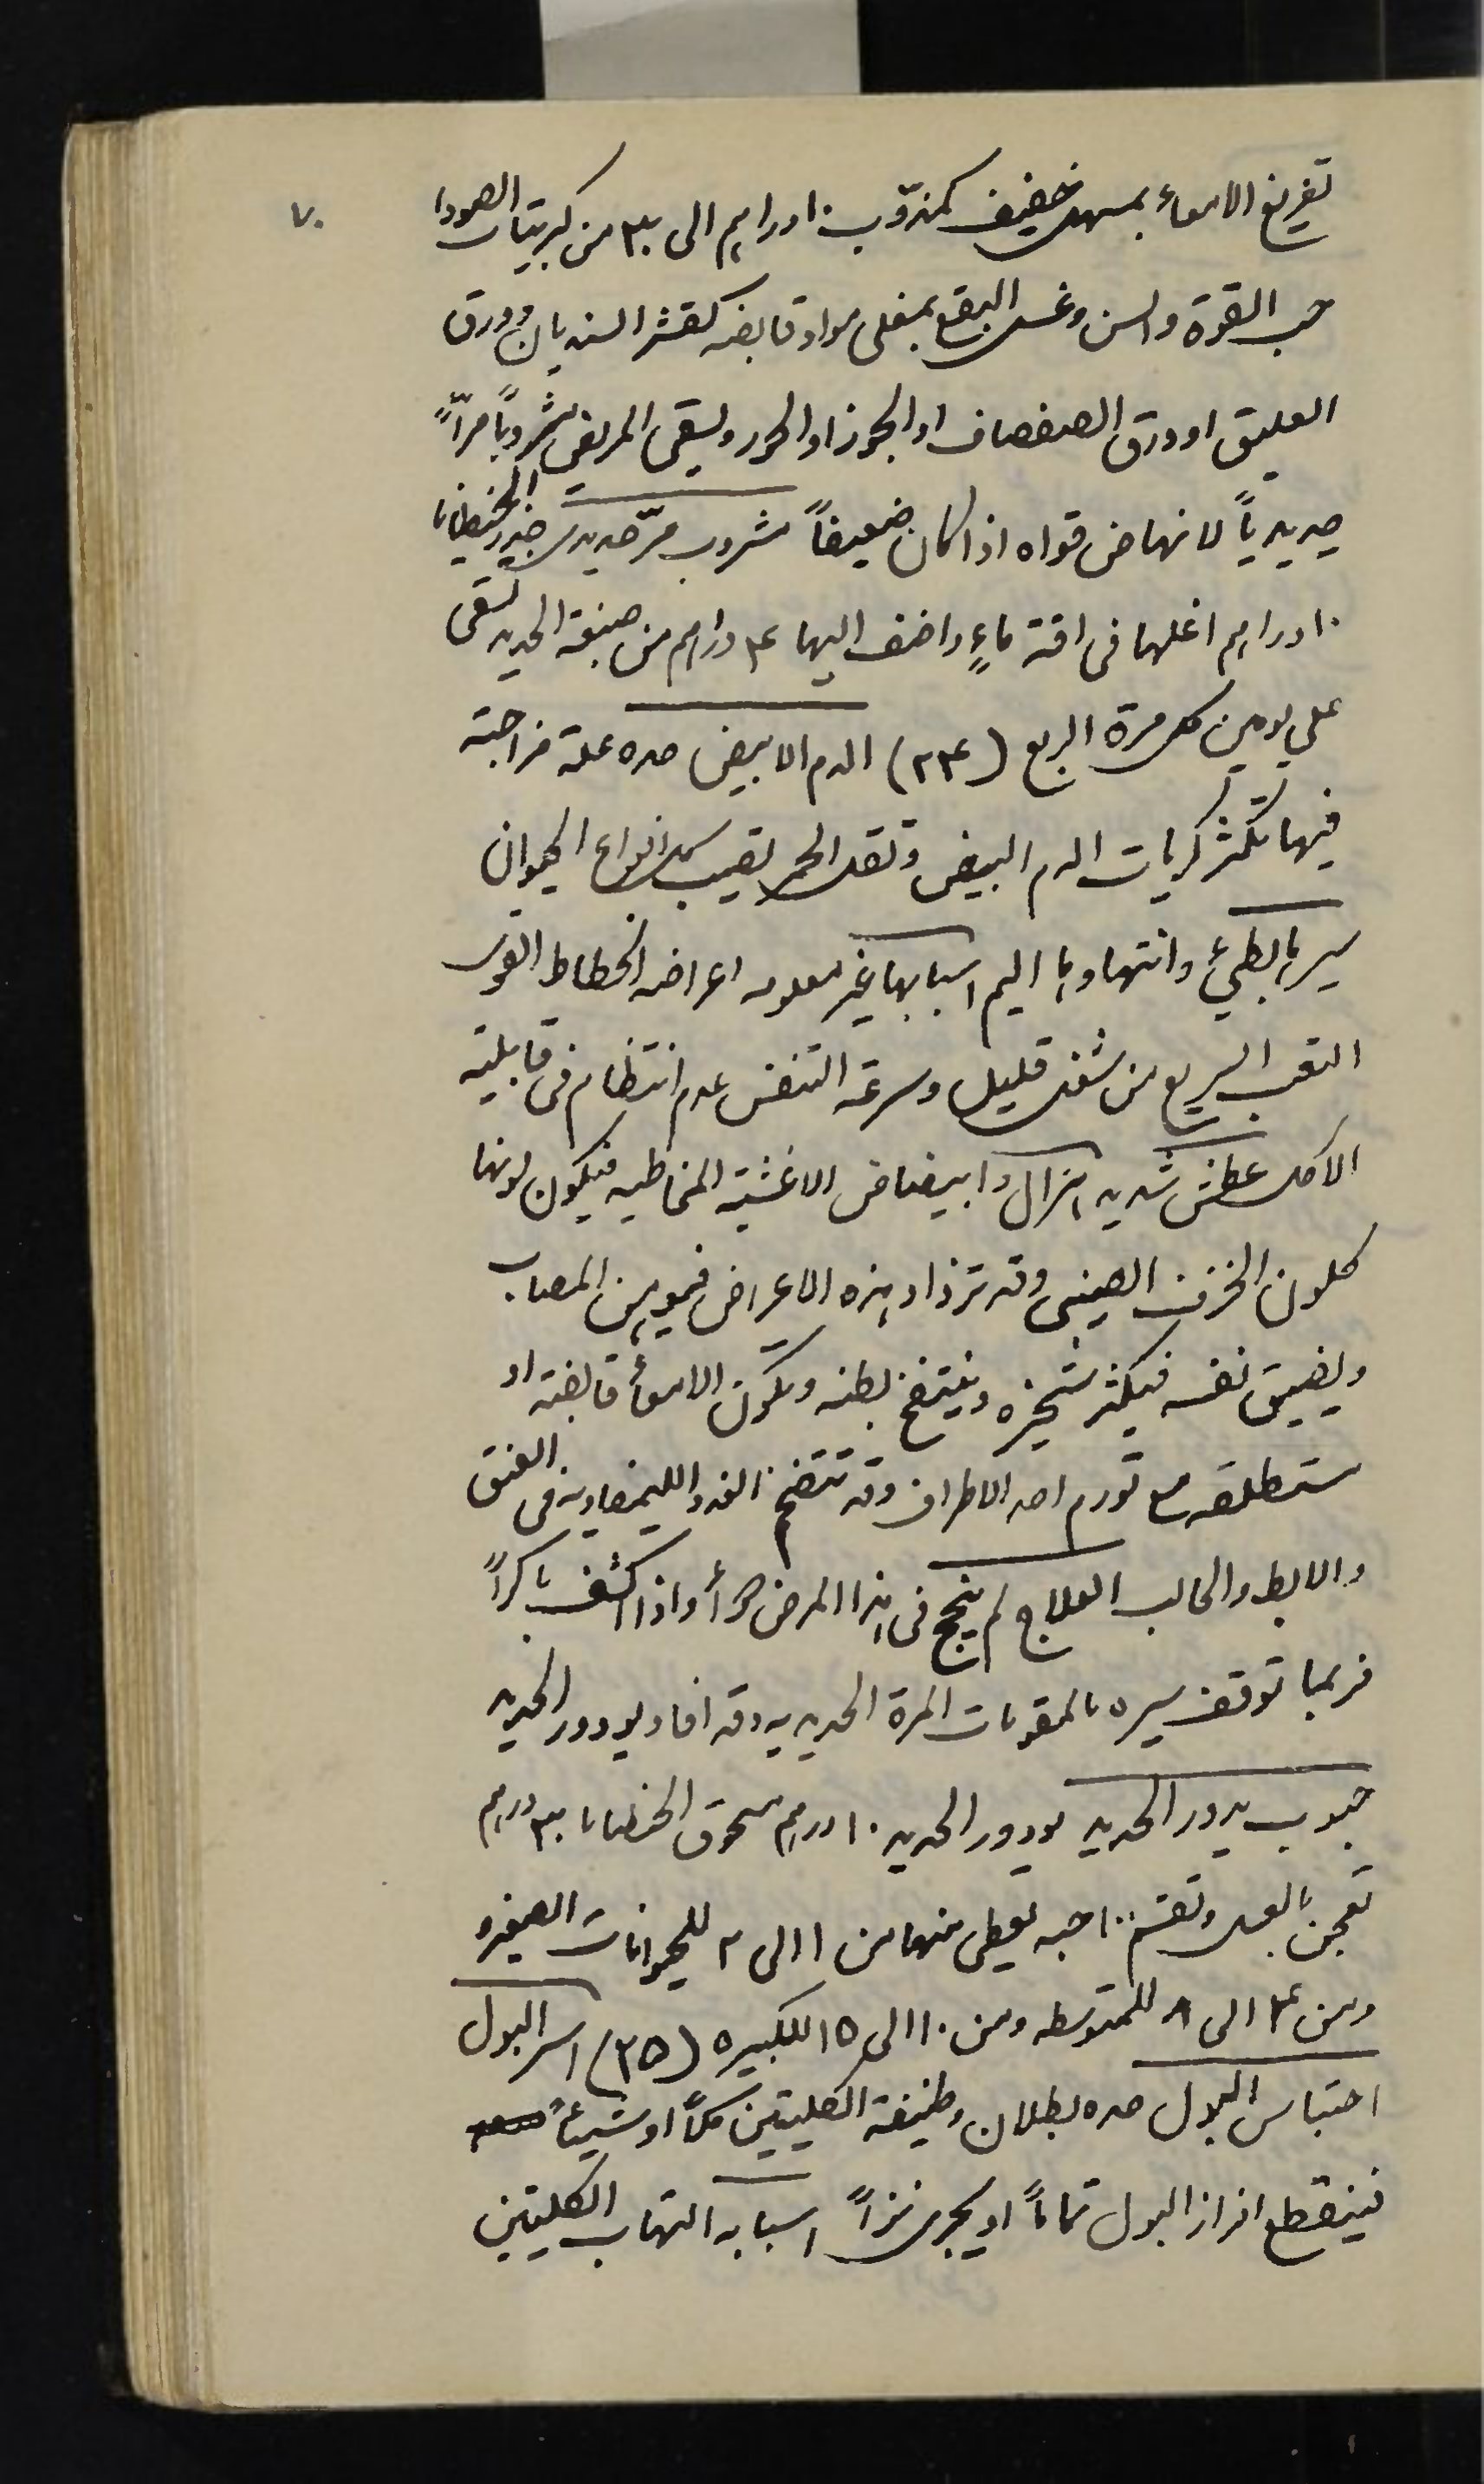 ٧٠
تفريغ الامعاء بمسهل خفيف كمذوّب ١٠ دراهم الى ٣٠ من كبريتات الصودا
حسب القوة والسن وغسل البقع بمغلى مواد قابضه كقشر السنديان وورق
العليق او ورق الصفصاف او الجوز او الحور ويسقى المريض مشروباً مرّاً
حديدياً لانهاض قواه اذا كان ضعيفاً مشروب مرّ حديدي جذر الجنطيانا
١٠ دراهم اغلها في اقة ماءٍ واضف اليها ٤ دراهم من صبغة الحديد تسقى
على يومين كل مرة الربع (٣٤) الدم الابيض حده علة مزاجية
فيها تكثر كريات الدم البيض وتقل الحمر تصيب كل انواع الحيوان
سيرها بطيئ وانتهاوها اليم اسبابها غير معلومه اعراضه انحطاط القوى
التعب السريع من شغل قليل وسرعة التنفس عدم انتظام في قابلية
الاكل عطش شديد هزال وابيضاض الاغشية المخاطيه فيكون لونها
كلون الخزف الصيني وقد تزداد هذه الاعراض فيوهن المصاب
ويضيق نفسه فيكثر شخيره وينتفخ بطنه وتكون الامعاء قابضة او
مستطلقه مع تورم احد الاطراف وقد تنتفخ الغدد الليمفاويه في العنق
والابط والحالب العلاج لم ينجح في هذا المرض دواء واذا اكتشف باكراً
فربما توقف سيره بالمقويات المرة الحديديه وقد افاد يودور الحديد
حبوب يودور الحديد يودور الحديد ١٠ درهم مسحوق الجنطيانا ٣٠ درهم
تعجن بالعسل وتقسم ١٠٠ حبه يعطى منها من ١ الى ٢ للحيوانات الصغيره
ومن ٤ الى ٨ للمتوسطه ومن ١٠ الى ١٥ للكبيره (٣٥) اسر البول
احتباس البول حده بطلان وظيفة الكليتين كلاً او شيئاً
فينقطع افراز البول تماماً او يجري نزراً اسبابه التهاب الكليتين